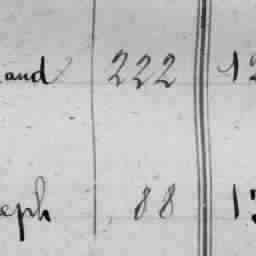 and 222 12
eph 88 1